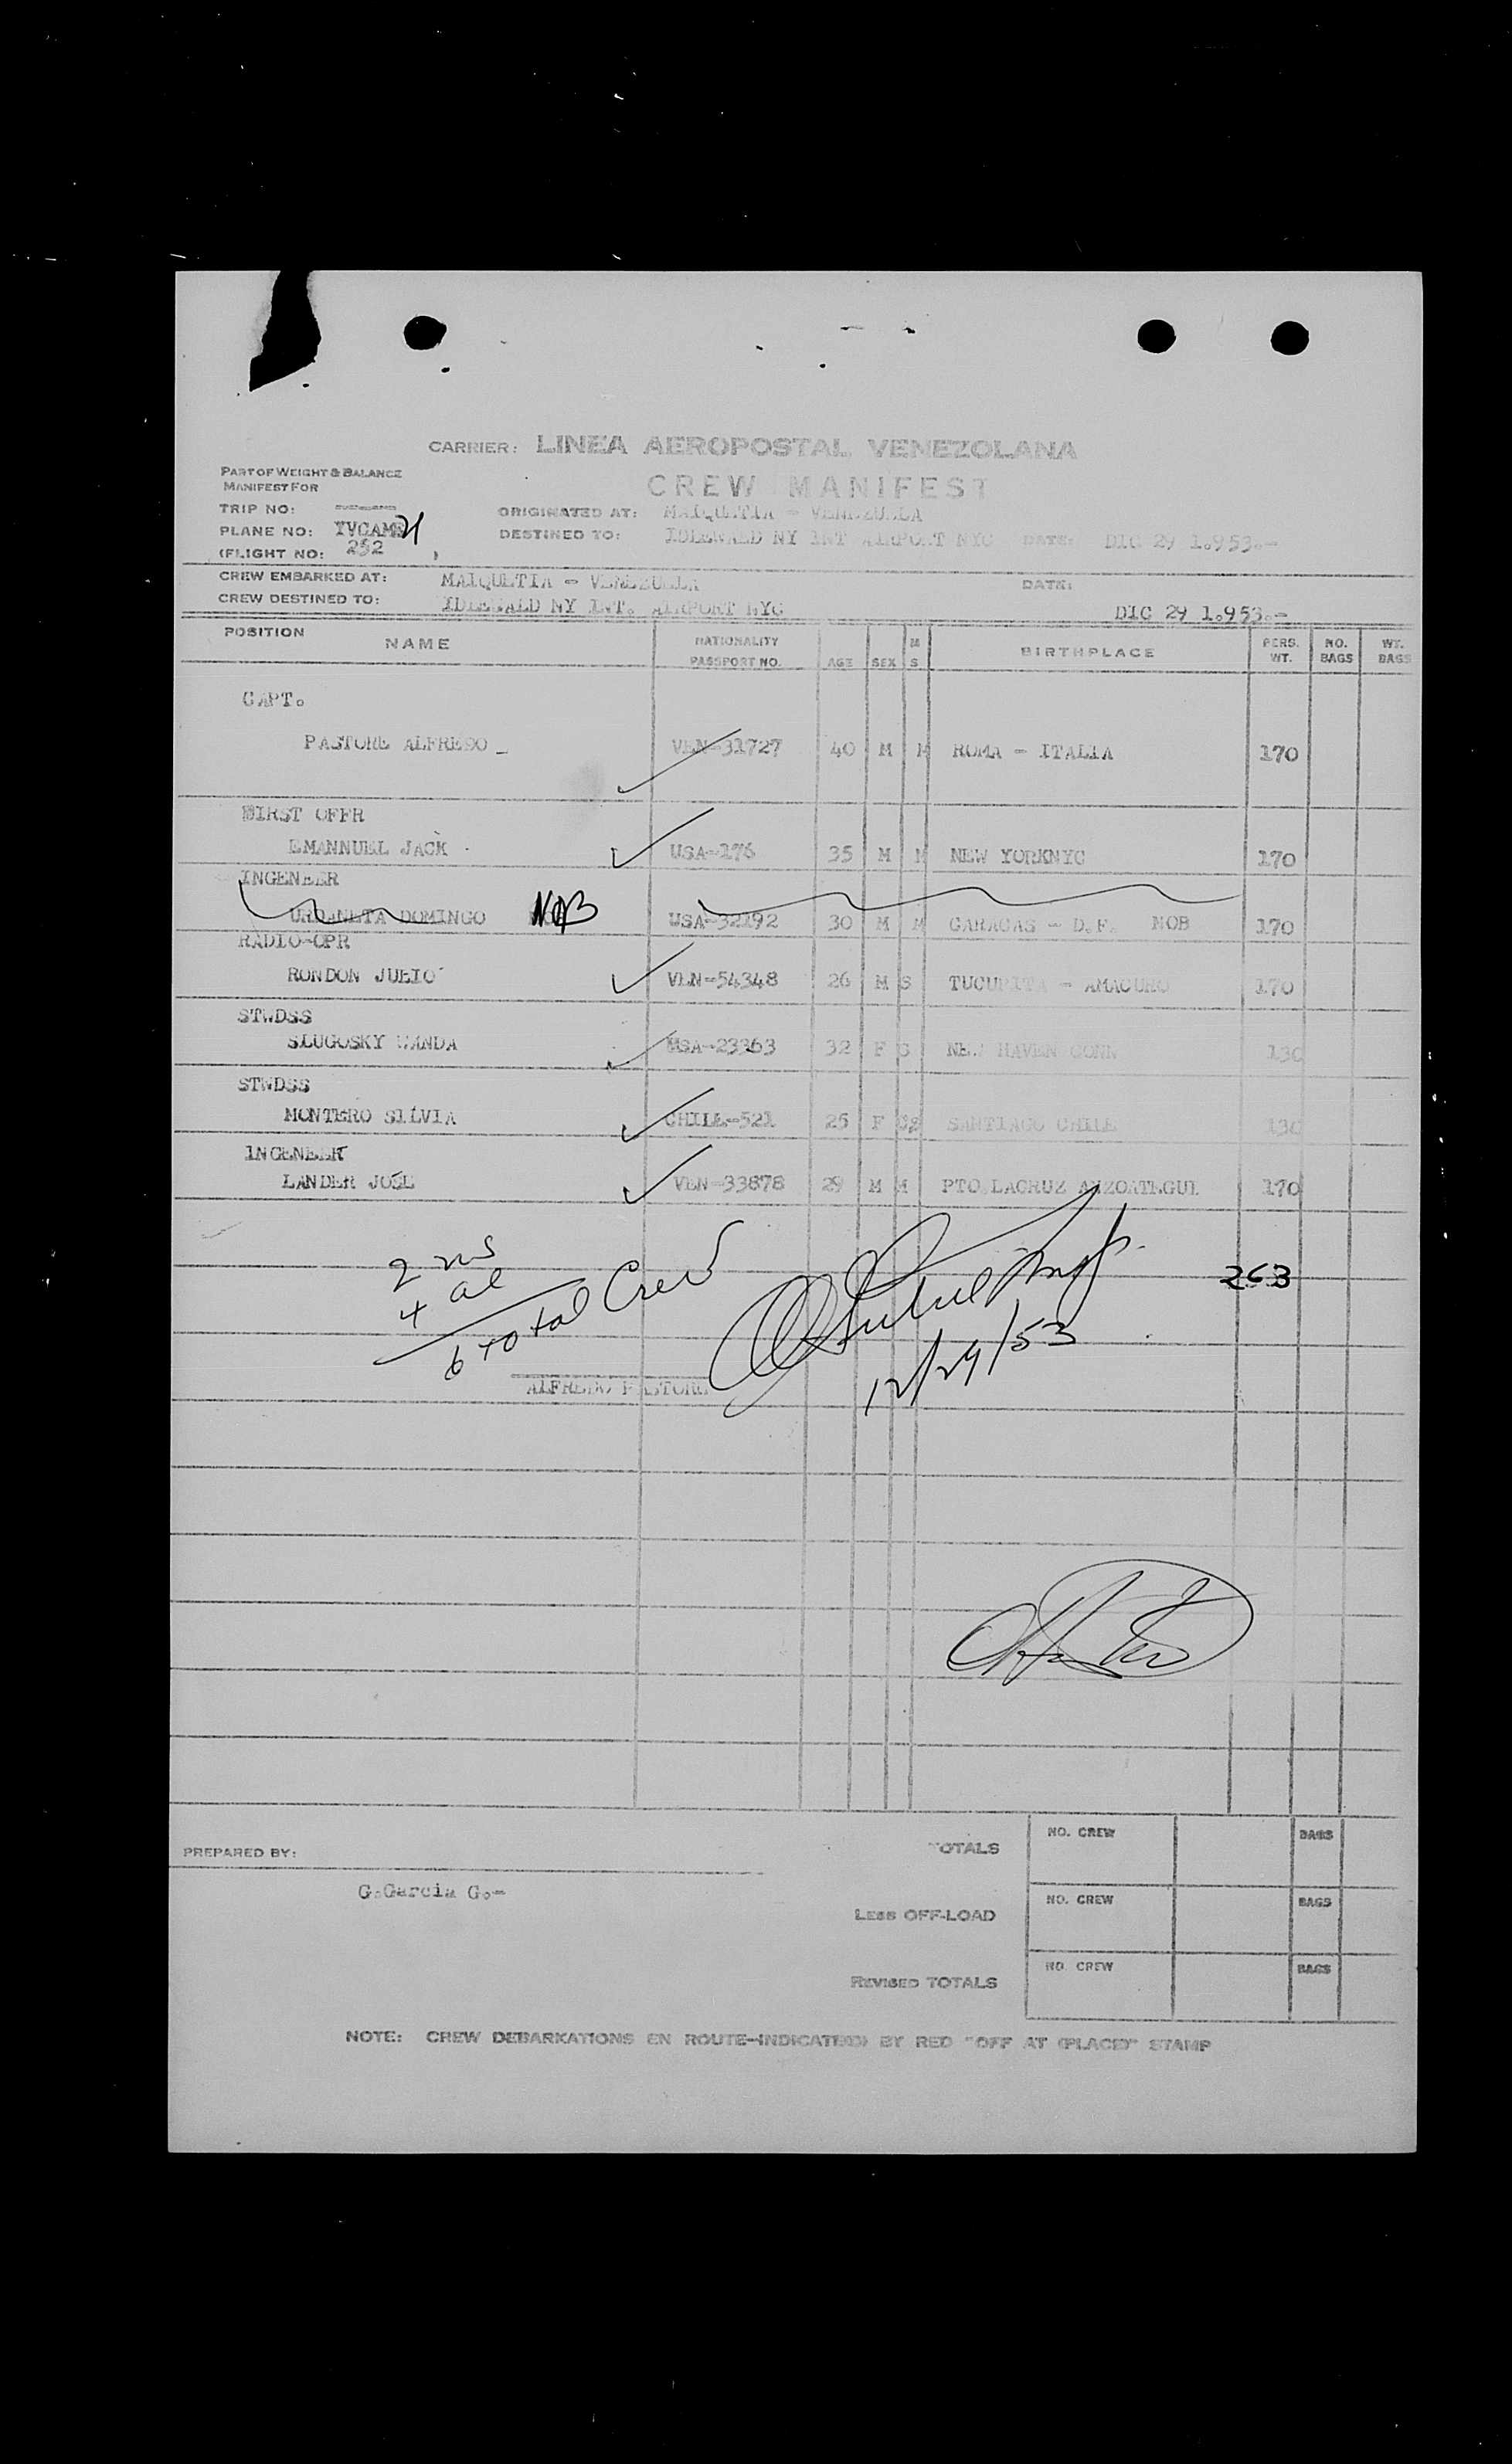 CARRIER: LINEA AEROPOSTAL VENEZOLANA
PART OF WEIGHT & BALANCE
MANIFEST FOR
CREW MANIFEST
TRIP NO:
ORIGINATED AT: MAIQUETIA - VENEZUELA
PLANE NO: YVCAM
DESTINED TO: IDLEWAED NY INT AIRPORT NYC DATE: DIC 29 1.953.-
(FLIGHT NO: 252 )
CREW EMBARKED AT: MAIQUETIA - VENEZUELA DATE:
CREW DESTINED TO: IDLEWALD NY INT. AIRPORT NYC DIC 29 1.953.-
POSITION NAME NATIONALITY PASSPORT NO. AGE SEX M S BIRTHPLACE PERS. WT. NO. BAGS WT. BAGS
CAPT.
PASTORE ALFREDO - VEN-31727 40 M M ROMA - ITALIA 170
FIRST OFFR
EMANNUEL JACK USA-176 35 M M NEW YORKNYC 170
INGENEER
URDANETA DOMINGO NOB USA-32192 30 M M CARACAS - D.F. NOB 170
RADIO-OPR
RONDON JULIO VEN-54348 26 M S TUCUPITA - AMACURO 170
STWDSS
SLUGOSKY WANDA USA-23363 32 F S NEW HAVEN CONN 130
STWDSS
MONTERO SILVIA CHILE-521 25 F S SANTIAGO CHILE 130
INGENEER
LANDER JOSE VEN-33878 29 M M PTO LACRUZ ANZOATEGUI 170
2 
4 al
6 total Crew
263
12/29/53
ALFREDO PASTORE
PREPARED BY:
G.Garcia G.-
TOTALS NO. CREW BAGS
LESS OFF-LOAD NO. CREW BAGS
REVISED TOTALS NO. CREW BAGS
NOTE: CREW DEBARKATIONS EN ROUTE-INDICATED) BY RED "OFF AT (PLACE)" STAMP